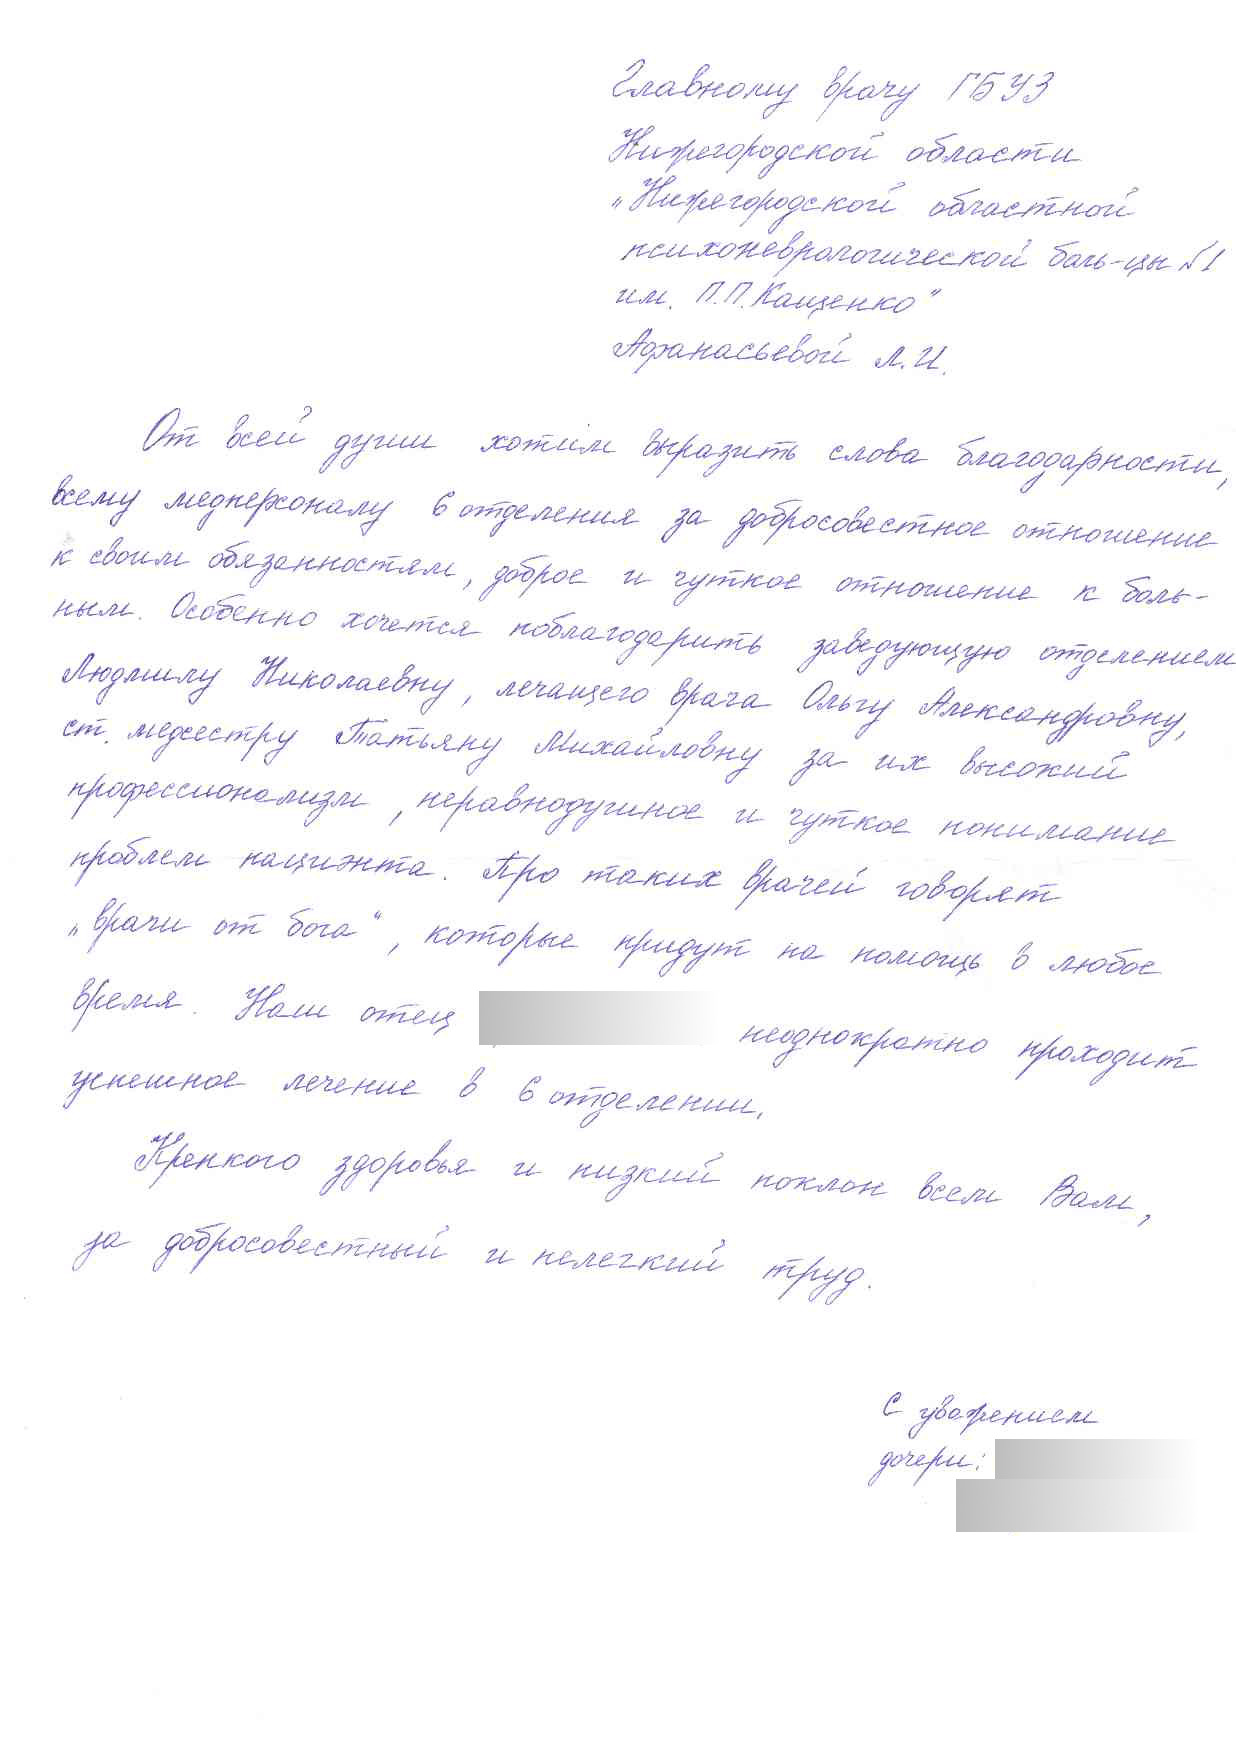 Главному врачу ГБУЗ
Нижегородской области
„Нижегородской областной
психоневрологической боль-цы №1
им. П.П. Кащенко"
Афанасьевой Л.И.
От всей души хотим выразить слова благодарности,
всему медперсоналу 6 отделения за добросовестное отношение
к своим обязанностям, доброе и чуткое отношение к боль-
ным. Особенно хочется поблагодарить заведующую отделением
Людмилу Николаевну, лечащего врача Ольгу Александровну,
ст. медсестру Татьяну Михайловну за их высокий
профессионализм, неравнодушное и чуткое понимание
проблем пациэнта. Про таких врачей говорят
„врачи от бога", которые придут на помощь в любое
время. Наш отец неоднократно проходит
успешное лечение в 6 отделении.
Крепкого здоровья и низкий поклон всем Вам,
за добросовестный и нелегкий труд.
С уважением
дочери: